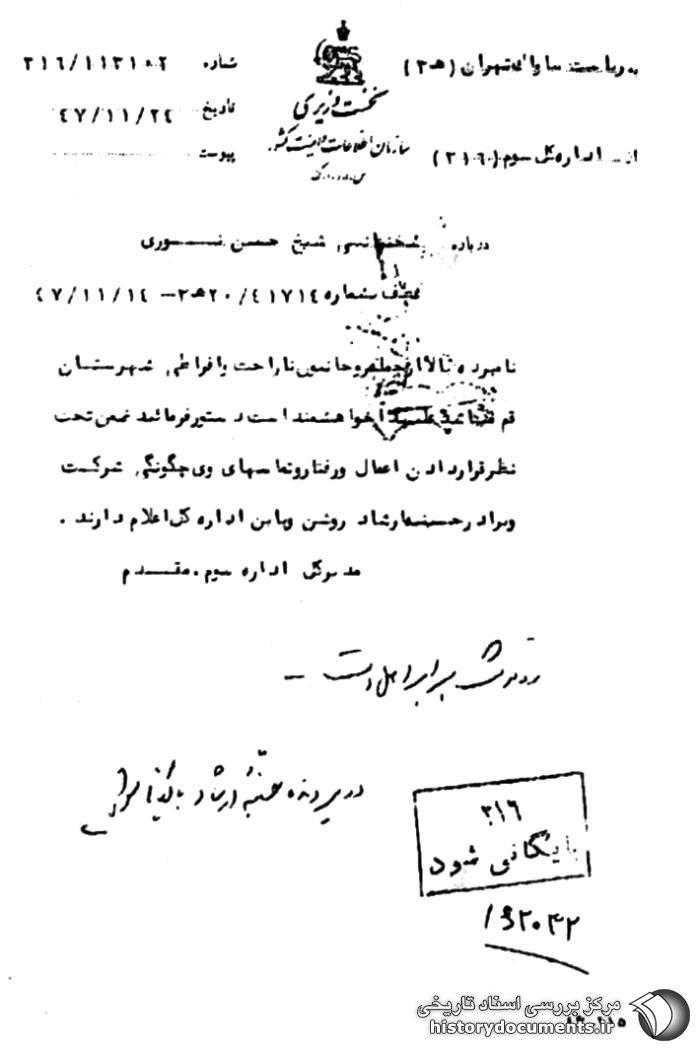 به ریاست ساواک تهران (ه‍ ۳)
شماره ۳۱۶/۱۱۳۱۰۲
نخست وزیری
تاریخ ۴۷/۱۱/۲۴
سازمان اطلاعات و امنیت کشور
از اداره کل سوم (۳۱۶)
پیوست
س.ا.و.ا.ک
درباره شیخ حسن نوری
عطف بشماره ۲۰/۴۱۷۱۴ ه‍ ۳ – ۴۷/۱۱/۱۴
نامبرده بالا از روحانیون ناراحت و افراطی شهرستان
قم خواهشمند است دستور فرمائید ضمن تحت
نظر قرار دادن اعمال و رفتار و تماسهای وی چگونگی شرکت
ویرا در حسینیه ارشاد روشن و باین اداره کل اعلام دارند .
مدیر کل اداره سوم . مقدم
رونوشت برابر اصل است –
در پرونده حسینیه ارشاد بایگانی
۳۱۶
بایگانی شود
۱۶۲۰۴۲
مرکز بررسی اسناد تاریخی
historydocuments.ir